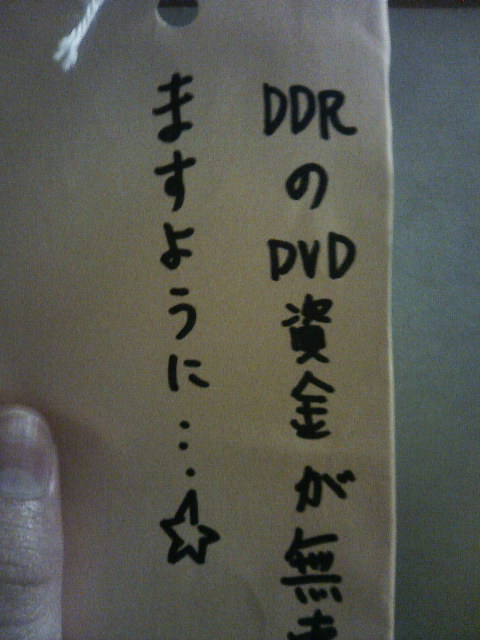 DDRのDVD資金が無
ますように…☆